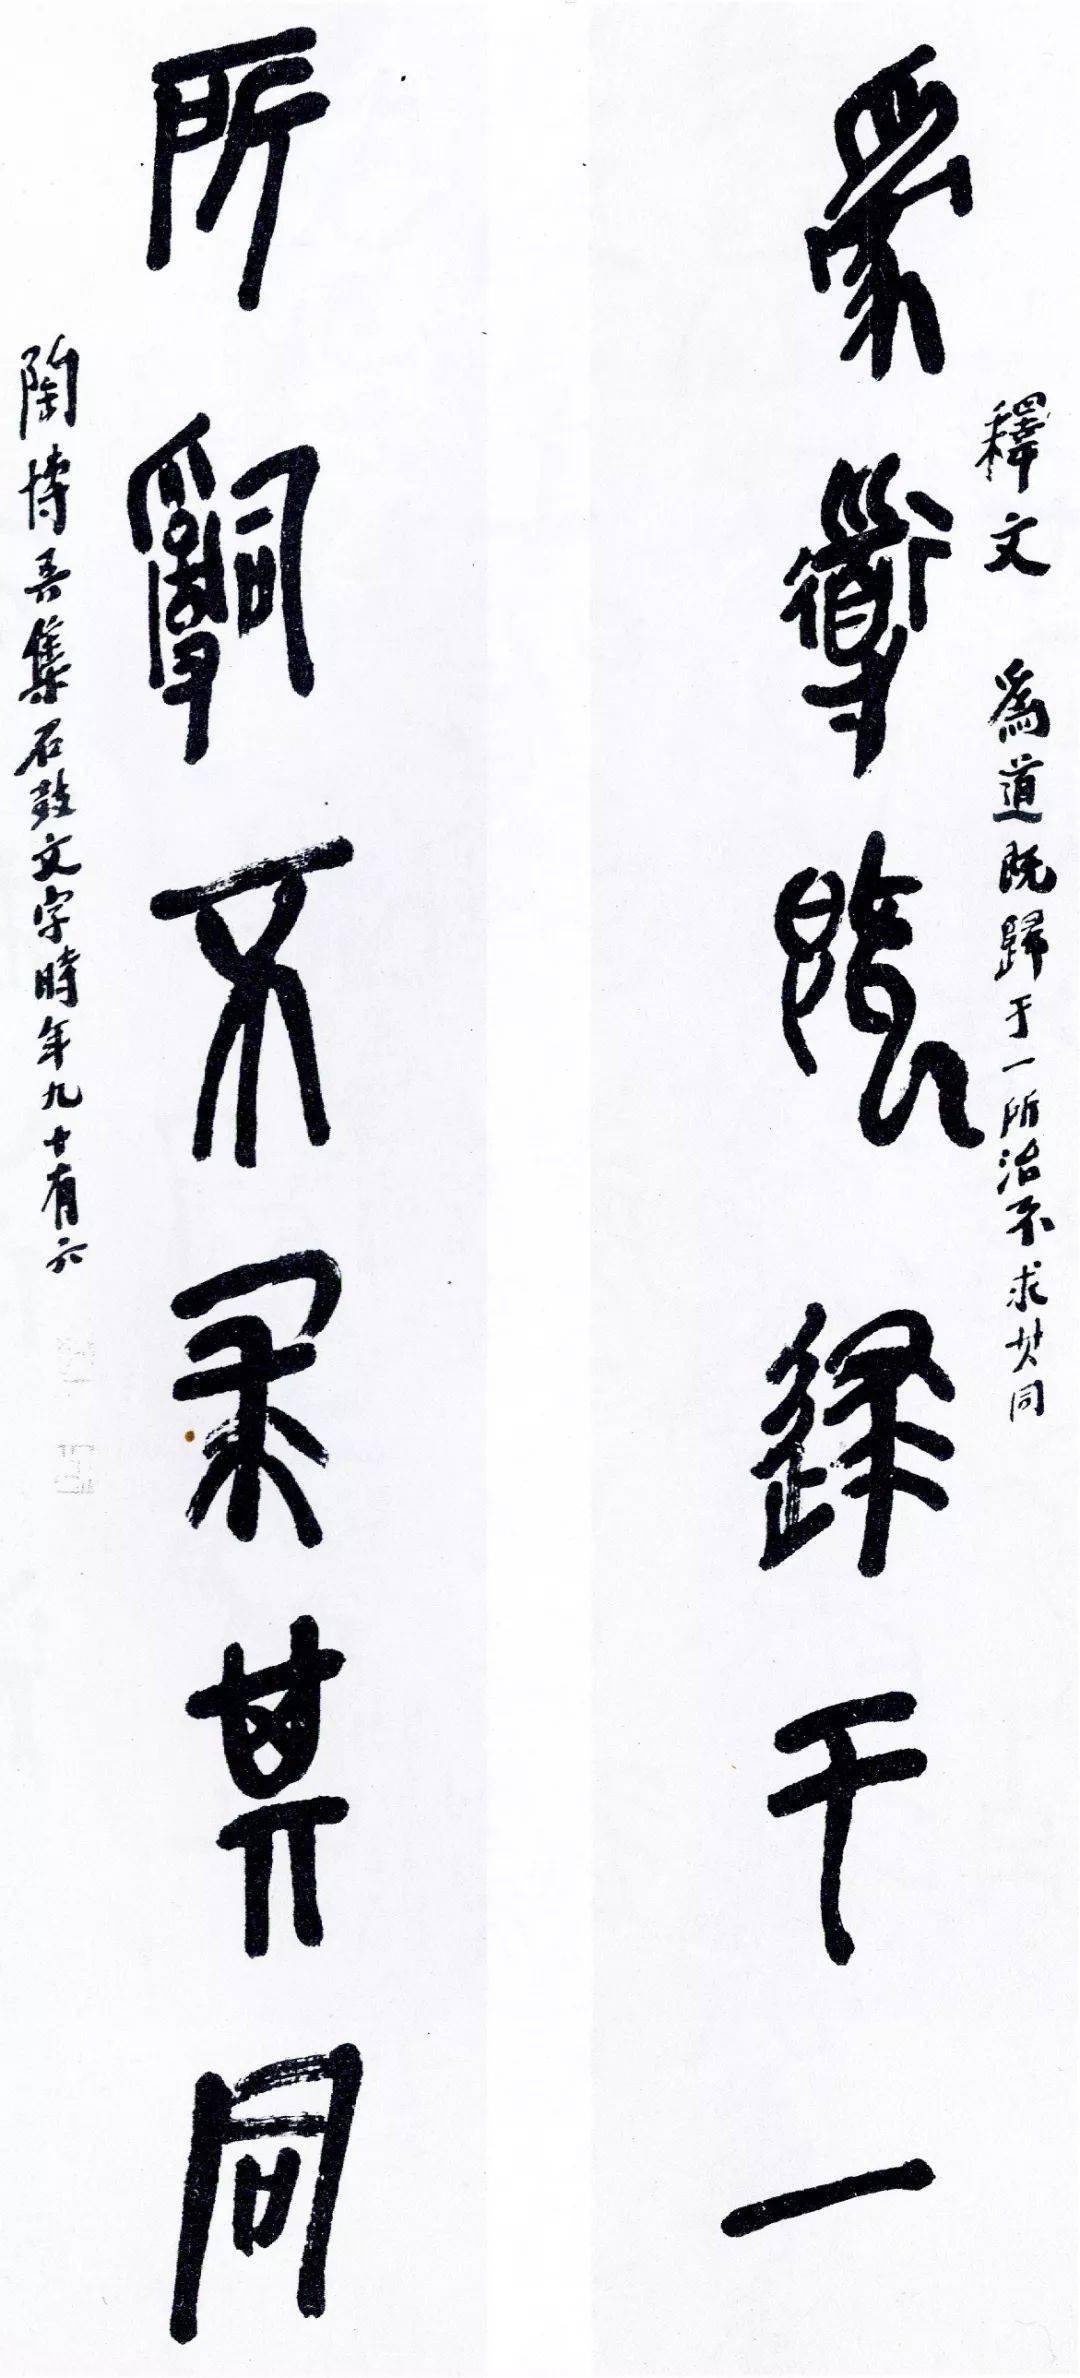 釋文 為道既歸于一所治不求其同
為道既歸于一
所嗣不求其同
陶博吾集石鼓文字時年九十有六